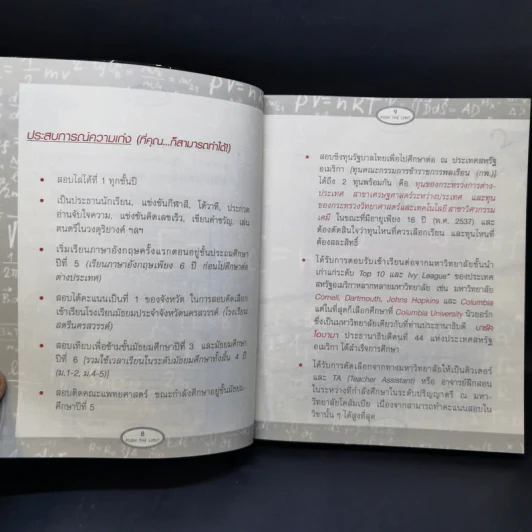 ประสบการณ์ความเก่ง (ที่คุณ...ก็สามารถทำได้!)
• สอบได้ที่ 1 ทุกชั้นปี
• เป็นประธานนักเรียน, แข่งขันกีฬาสี, โต้วาที, ประกวด
อ่านจับใจความ, แข่งขันคิดเลขเร็ว, เขียนคำขวัญ, เล่น
ดนตรีในวงดุริยางค์ ฯลฯ
• เริ่มเรียนภาษาอังกฤษครั้งแรกตอนอยู่ชั้นประถมศึกษา
ปีที่ 5 (เรียนภาษาอังกฤษเพียง 6 ปี ก่อนไปศึกษาต่อ
ต่างประเทศ)
• สอบได้คะแนนเป็นที่ 1 ของจังหวัด ในการสอบคัดเลือก
เข้าเรียนโรงเรียนมัธยมประจำจังหวัดนครสวรรค์ (โรงเรียน
สตรีนครสวรรค์)
• สอบเทียบเพื่อข้ามชั้นมัธยมศึกษาปีที่ 3 และมัธยมศึกษา
ปีที่ 6 (รวมใช้เวลาเรียนในระดับมัธยมศึกษาทั้งสิ้น 4 ปี
(ม.1-2, ม.4-5))
• สอบติดคณะแพทยศาสตร์ ขณะกำลังศึกษาอยู่ชั้นมัธยม
ศึกษาปีที่ 5
8
PUSH THE LIMIT
9
PUSH THE LIMIT
• สอบชิงทุนรัฐบาลไทยเพื่อไปศึกษาต่อ ณ ประเทศสหรัฐ
อเมริกา (ทุนคณะกรรมการข้าราชการพลเรือน (กพ.))
ได้ถึง 2 ทุนพร้อมกัน คือ ทุนของกระทรวงการต่าง-
ประเทศ สาขาเศรษฐศาสตร์ระหว่างประเทศ และทุน
ของกระทรวงวิทยาศาสตร์และเทคโนโลยี สาขาวิศวกรรม
เคมี ในขณะที่มีอายุเพียง 16 ปี (พ.ศ. 2537) และ
ต้องตัดสินใจว่าทุนไหนที่ควรเลือกเรียน และทุนไหนที่
ต้องสละสิทธิ์
• ได้รับการตอบรับเข้าเรียนต่อจากมหาวิทยาลัยชั้นนำ
เก่าแก่ระดับ Top 10 และ Ivy League* ของประเทศ
สหรัฐอเมริกาหลากหลายมหาวิทยาลัย เช่น มหาวิทยาลัย
Cornell, Dartmouth, Johns Hopkins และ Columbia
แต่ในที่สุดก็เลือกศึกษาที่ Columbia University นิวยอร์ก
ซึ่งเป็นมหาวิทยาลัยเดียวกับที่ท่านประธานาธิบดี บารัค
โอบามา ประธานาธิบดีคนที่ 44 แห่งประเทศสหรัฐ
อเมริกา ได้สำเร็จการศึกษา
• ได้รับการคัดเลือกจากทางมหาวิทยาลัยให้เป็นติวเตอร์
และ TA (Teacher Assistant) หรือ อาจารย์ฝึกสอน
ในระหว่างที่กำลังศึกษาในระดับปริญญาตรี ณ มหา-
วิทยาลัยโคลัมเบีย เนื่องจากสามารถทำคะแนนสอบใน
วิชานั้น ๆ ได้สูงที่สุด